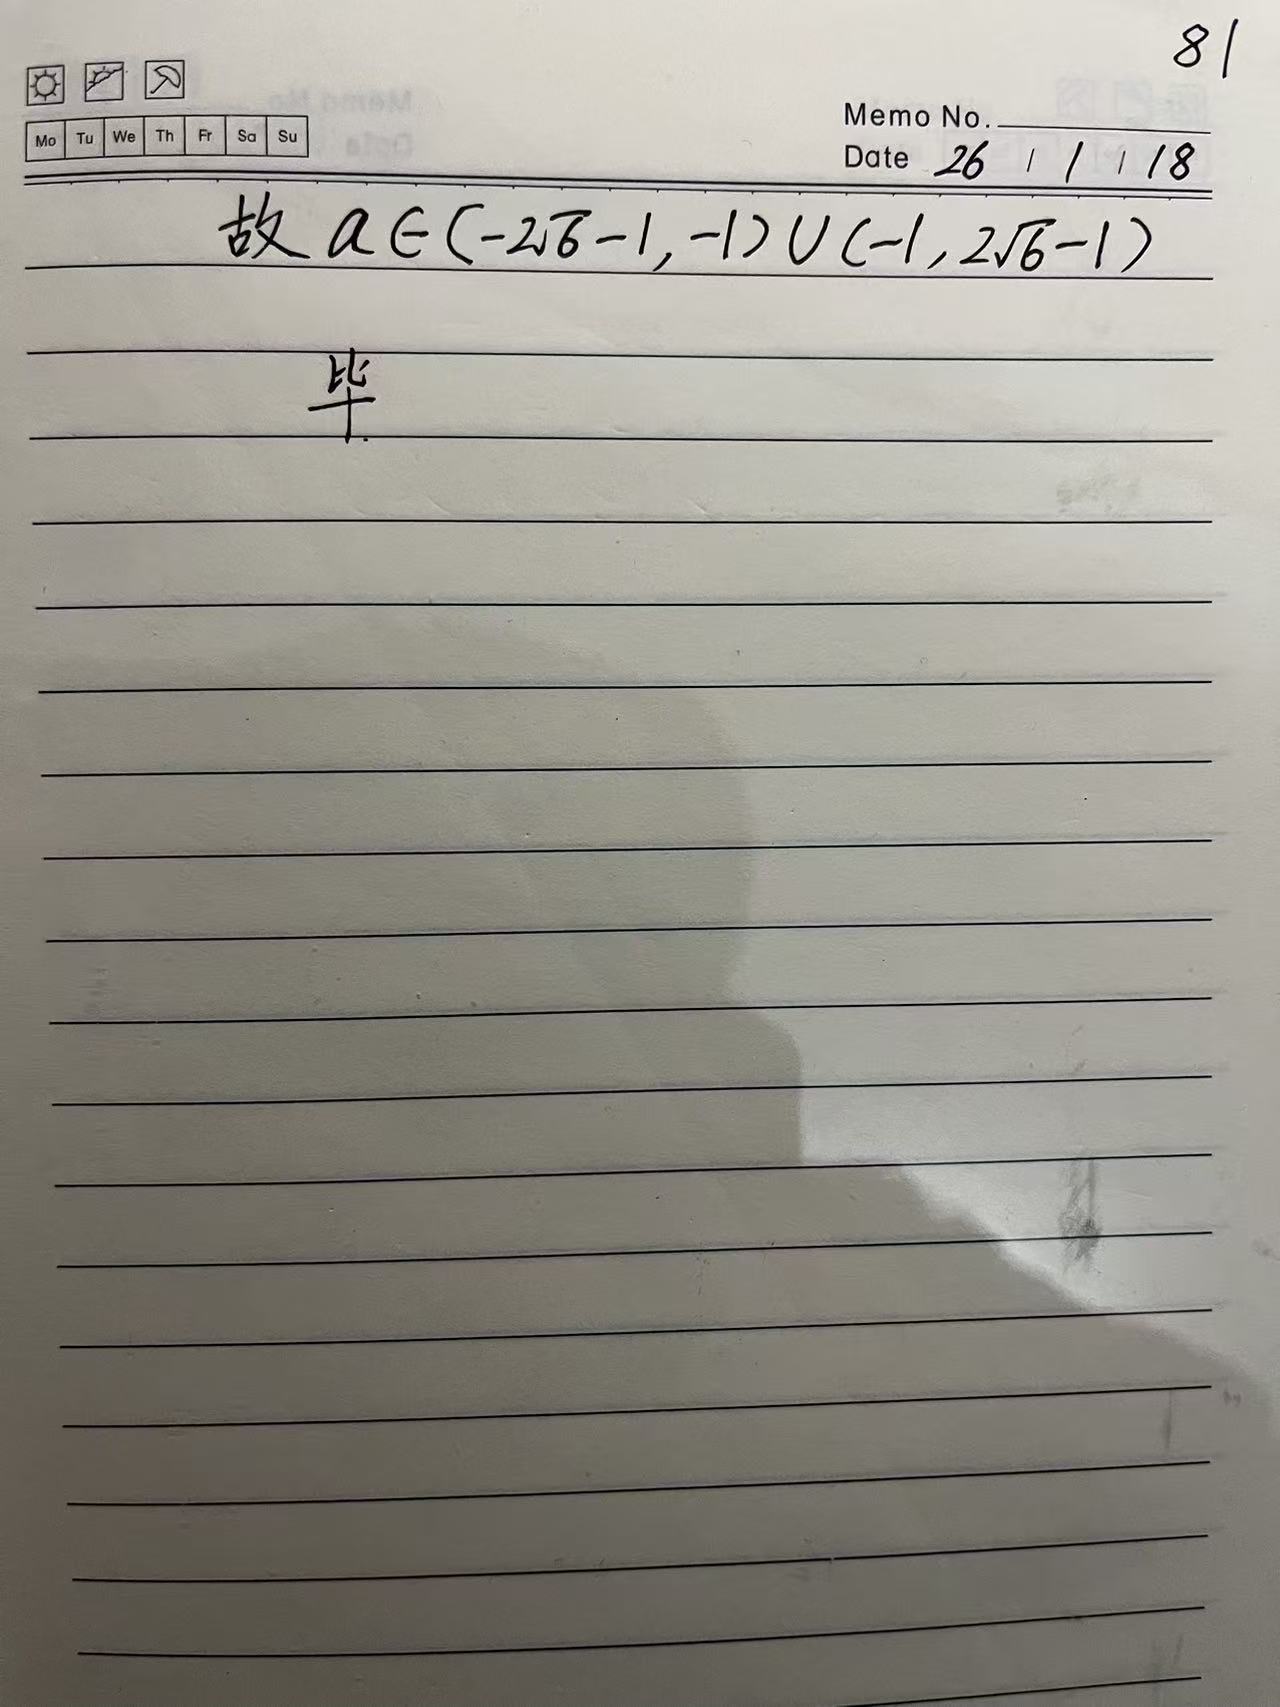 81
Mo Tu We Th Fr Sa Su
Memo No.
Date 26 / 1 / 18
故 a∈(-2√6-1, -1)∪(-1, 2√6-1)
毕.